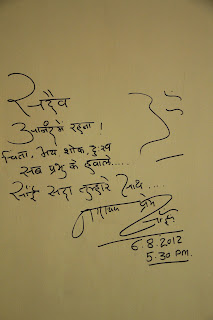 सदैव
आनंद में रहना !
चिंता, भय शोक, दुःख
सब प्रभु के हवाले.....
साँई सदा तुम्हारे साथ ....
ॐ
नारायण प्रेम
साँई
6.8.2012
5.30 PM.